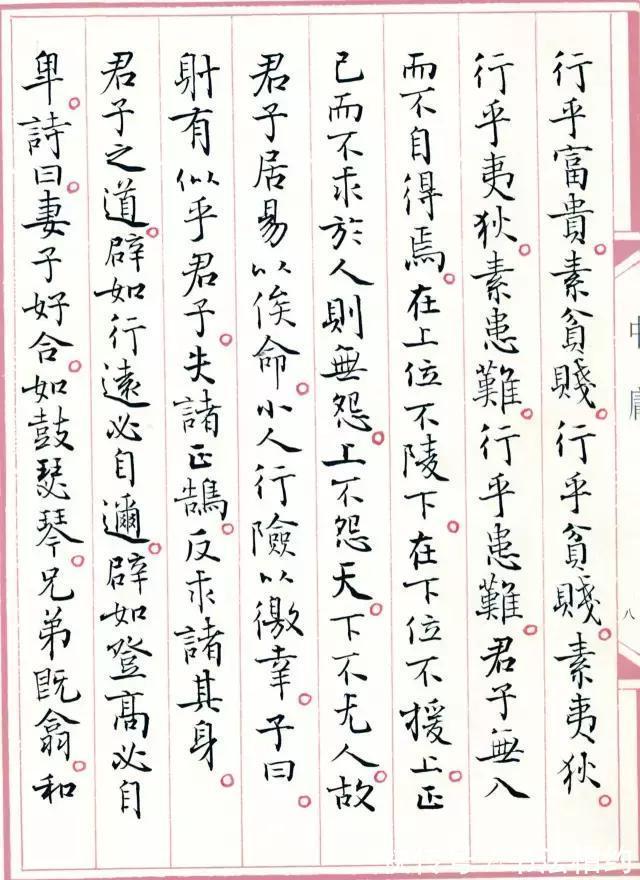 中庸
八
行乎富貴。素貧賤。行乎貧賤。素夷狄。
行乎夷狄。素患難。行乎患難。君子無入
而不自得焉。在上位不陵下。在下位不援上正
己而不求於人則無怨。上不怨天。下不尤人。故
君子居易以俟命。小人行險以徼幸。子曰。
射有似乎君子。失諸正鵠。反求諸其身。
君子之道。辟如行遠必自邇。辟如登高必自
卑。詩曰。妻子好合。如鼓瑟琴。兄弟既翕。和